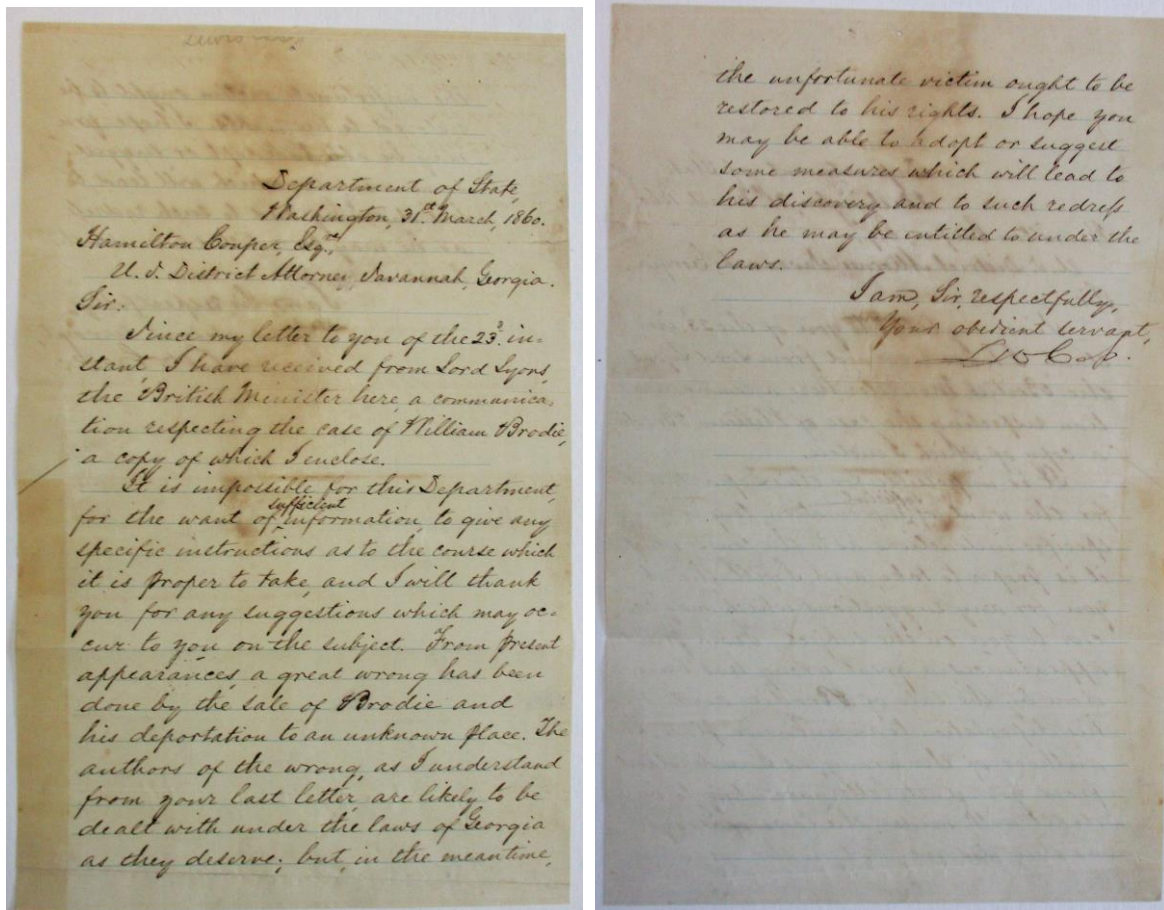 Department of State,
Washington, 31st March, 1860.
Hamilton Couper, Esqre,
U. S. District Attorney, Savannah, Georgia.
Sir:
Since my letter to you of the 23d. in-
stant, I have received from Lord Lyons,
the British Minister here, a communica-
tion respecting the case of William Brodie,
a copy of which I enclose.
It is impossible for this Department,
for the want of sufficient information, to give any
specific instructions as to the course which
it is proper to take, and I will thank
you for any suggestions which may oc-
cur to you on the subject. From present
appearances, a great wrong has been
done by the sale of Brodie and
his deportation to an unknown place. The
authors of the wrong, as I understand
from your last letter, are likely to be
dealt with under the laws of Georgia
as they deserve; but, in the meantime,
the unfortunate victim ought to be
restored to his rights. I hope you
may be able to adopt or suggest
some measures which will lead to
his discovery and to such redress
as he may be entitled to under the
laws.
I am, Sir, respectfully,
Your obedient servant,